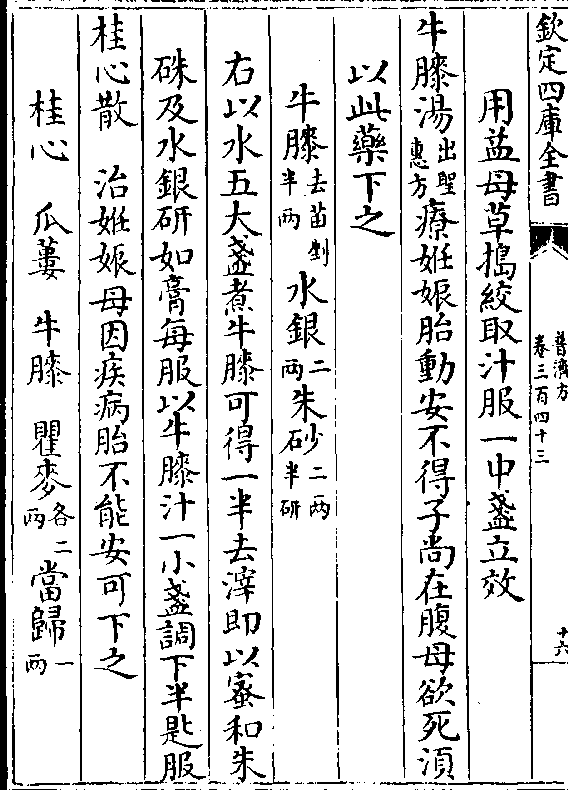 欽定四庫全書
普濟方
卷三百四十三
十六
用益母草搗絞取汁服一中盞立效
牛膝湯出聖惠方療姙娠胎動安不得子尚在腹母欲死湏
以此藥下之
牛膝去苗剉半两水銀二两朱砂二两半研
右以水五大盞煮牛膝可得一半去滓即以蜜和朱
硃及水銀研如膏每服以牛膝汁一小盞調下半匙服
桂心散　治姙娠母因疾病胎不能安可下之
桂心　瓜蔞　牛膝　瞿麥各二两當歸一两